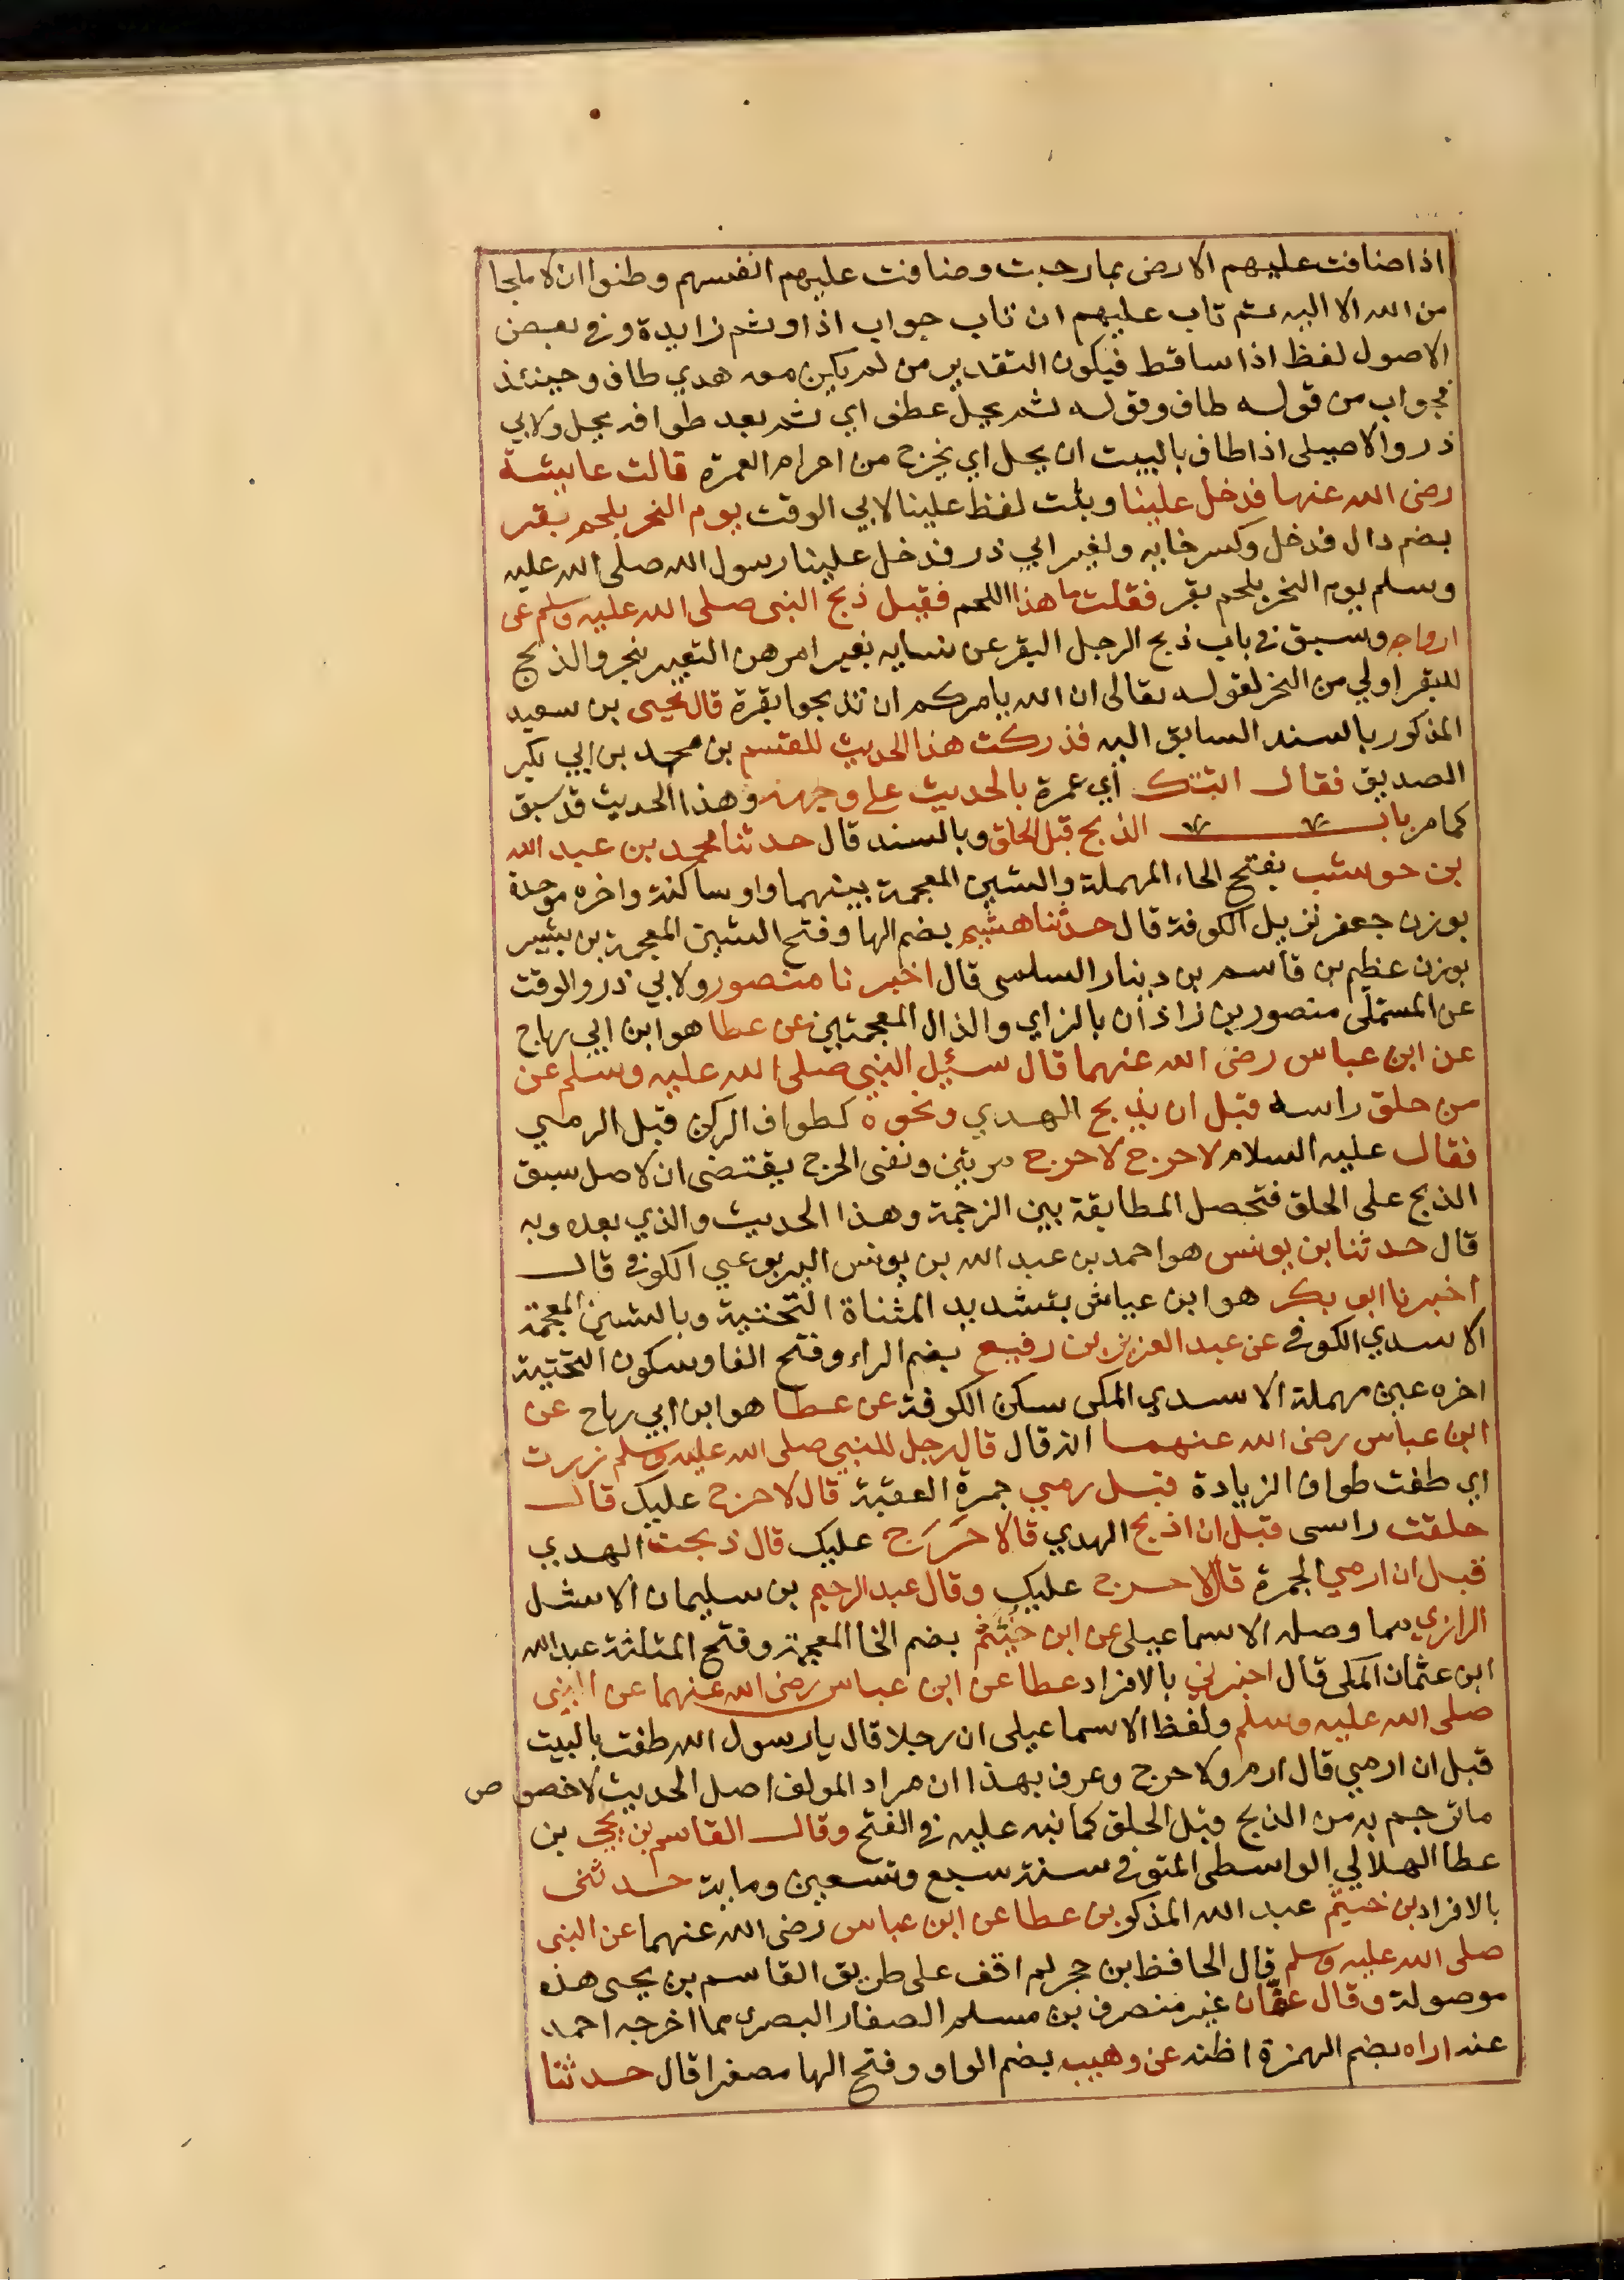 اذا ضاقت عليهم الارض بما رحبت وضاقت عليهم انفسهم وظنوا ان لا ملجا
من الله الا اليه ثم تاب عليهم ان تاب جواب اذا وثم زايدة وفي بعض
الاصول لفظ اذا ساقط فيكون التقدير من لم يكن معه هدي طاف وحينئذ
فجواب من قوله طاف وقوله ثم يحل عطف اي ثم بعد طوافه يحل ولابي
ذر والاصيلي اذا طاف بالبيت ان يحل اي يخرج من احرام العمرة قالت عايشة
رضي الله عنها فدخل علينا وبثت لفظ علينا لابي الوقت يوم النحر بلحم بقر
بضم دال فدخل وكسر خايه ولغير ابي ذر فدخل علينا رسول الله صلى الله عليه
وسلم يوم النحر بلحم بقر فقلت ما هذا اللحم فقيل ذبح النبي صلى الله عليه وسلم عن
ازواجه وسبق في باب ذبح الرجل البقر عن نسايه بغير امرهن التعبير بنحر والذبح
للبقر اولي من النحر لقوله تعالى ان الله يامركم ان تذبحوا بقرة قال يحيى بن سعيد
المذكور بالسند السابق اليه فذركت هذا الحديث للقسم بن محمد بن ابي بكر
الصديق فقال اتتك اي عمرة بالحديث على وجهه وهذا الحديث قد سبق
كما مر باب الذبح قبل الحلق وبالسند قال حدثنا محمد بن عبد الله
بن حوشب بفتح الحاء المهملة والشين المعجمة بينهما واو ساكنة واخره موحدة
بوزن جعفر نزيل الكوفة قال حدثنا هشيم بضم الها وفتح الشين المعجمة بن بشير
بوزن عظيم بن قاسم بن دينار السلمي قال اخبرنا منصور ولابي ذر والوقت
عن المستملى منصور بن زاذان بالزاي والذال المعجمتين عن عطا هو ابن ابي رباح
عن ابن عباس رضى الله عنهما قال سئيل النبي صلى الله عليه وسلم عن
من حلق راسه قبل ان يذبح الهدي ونحوه كطواف الركن قبل الرمي
فقال عليه السلام لا حرج لا حرج مرتين ونفى الحرج يقتضى ان لاصل سبق
الذبح على الحلق فتحصل المطابقة بين الترجمة وهذا الحديث والذي بعده وبه
قال حدثنا بن يونس هو احمد بن عبد الله بن يونس اليربوعي الكوفي قال
اخبرنا ابو بكر هو ابن عياش بتشديد المثناة التحتية وبالشين المعجمة
الاسدي الكوفي عن عبد العزيز بن رفيع بضم الراء وفتح الفا وسكون التحتية
اخره عين مهملة الاسدي المكي سكن الكوفة عن عطا هو ابن ابي رباح عن
ابن عباس رضى الله عنهما انه قال قال رجل للنبي صلى الله عليه وسلم زرت
اي طفت طواف الزيادة قبل رمي جمرة العقبة قال لا حرج عليك قال
حلقت راسى قبل ان اذبح الهدي قال لا حَرَج عليك قال ذبحت الهدي
قبل ان ارمي الجمرة قال لا حرج عليك وقال عبد الرحيم بن سليمان الاشل
الرازي مما وصله الاسماعيلى عن ابن خثيم بضم الخا المعجمة وفتح المثلثة عبد الله
ابن عثمان المكى قال اخبرني بالافراد عطا عن ابن عباس رضى الله عنهما عن النبى
صلى الله عليه وسلم ولفظ الاسماعيلى ان رجلا قال يا رسول الله طفت بالبيت
قبل ان ارمي قال ارم ولا حرج وعرف بهذا ان مراد المولف اصل الحديث لا خصوص
ما ترجم به من الذبح قبل الحلق كما نبه عليه في الفتح وقال القاسم بن يحيى بن
عطا الهلالي الواسطى المتوفي سنة سبع وتسعين وماية حدثنى
بالافراد بن خثيم عبد الله المذكور بن عطا عن ابن عباس رضى الله عنهما عن النبى
صلى الله عليه وسلم قال الحافظ ابن حجر لم اقف على طريق القاسم بن يحيى هذه
موصولة وقال عفّان غير منصرف بن مسلم الصفار البصري مما اخرجه احمد
عنه اراه بضم الهمزة اظنه عن وهيب بضم الواو وفتح الها مصغرا قال حدثنا